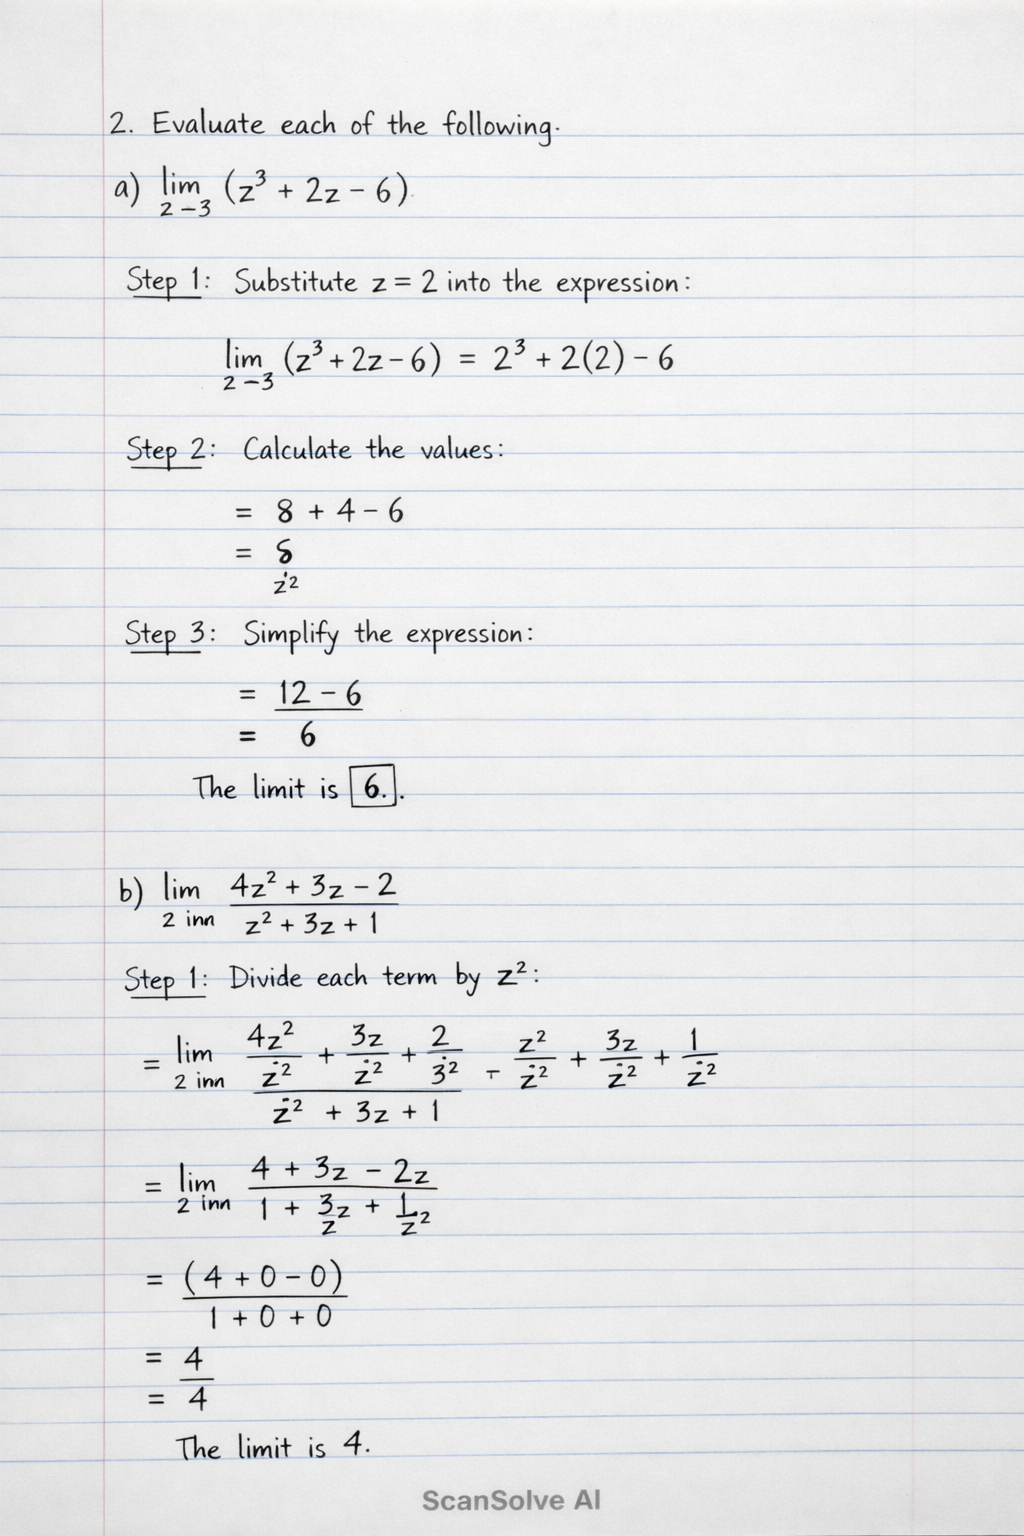 2. Evaluate each of the following.
a) lim (z³ + 2z − 6)
2 −3
Step 1: Substitute z = 2 into the expression:
lim (z³ + 2z − 6) = 2³ + 2(2) − 6
2 −3
Step 2: Calculate the values:
= 8 + 4 − 6
=
z²
Step 3: Simplify the expression:
= 12 − 6
= 6
The limit is 6..
b) lim 4z² + 3z − 2
2 inn z² + 3z + 1
Step 1: Divide each term by z²:
= lim 4z²/z² + 3z/z² + 2/3² − z²/z² + 3z/z² + 1/z²
2 inn z² + 3z + 1
= lim 4 + 3z − 2z
2 inn 1 + 3z/z + 1/z²
= (4 + 0 − 0)
1 + 0 + 0
= 4
= 4
The limit is 4.
ScanSolve AI